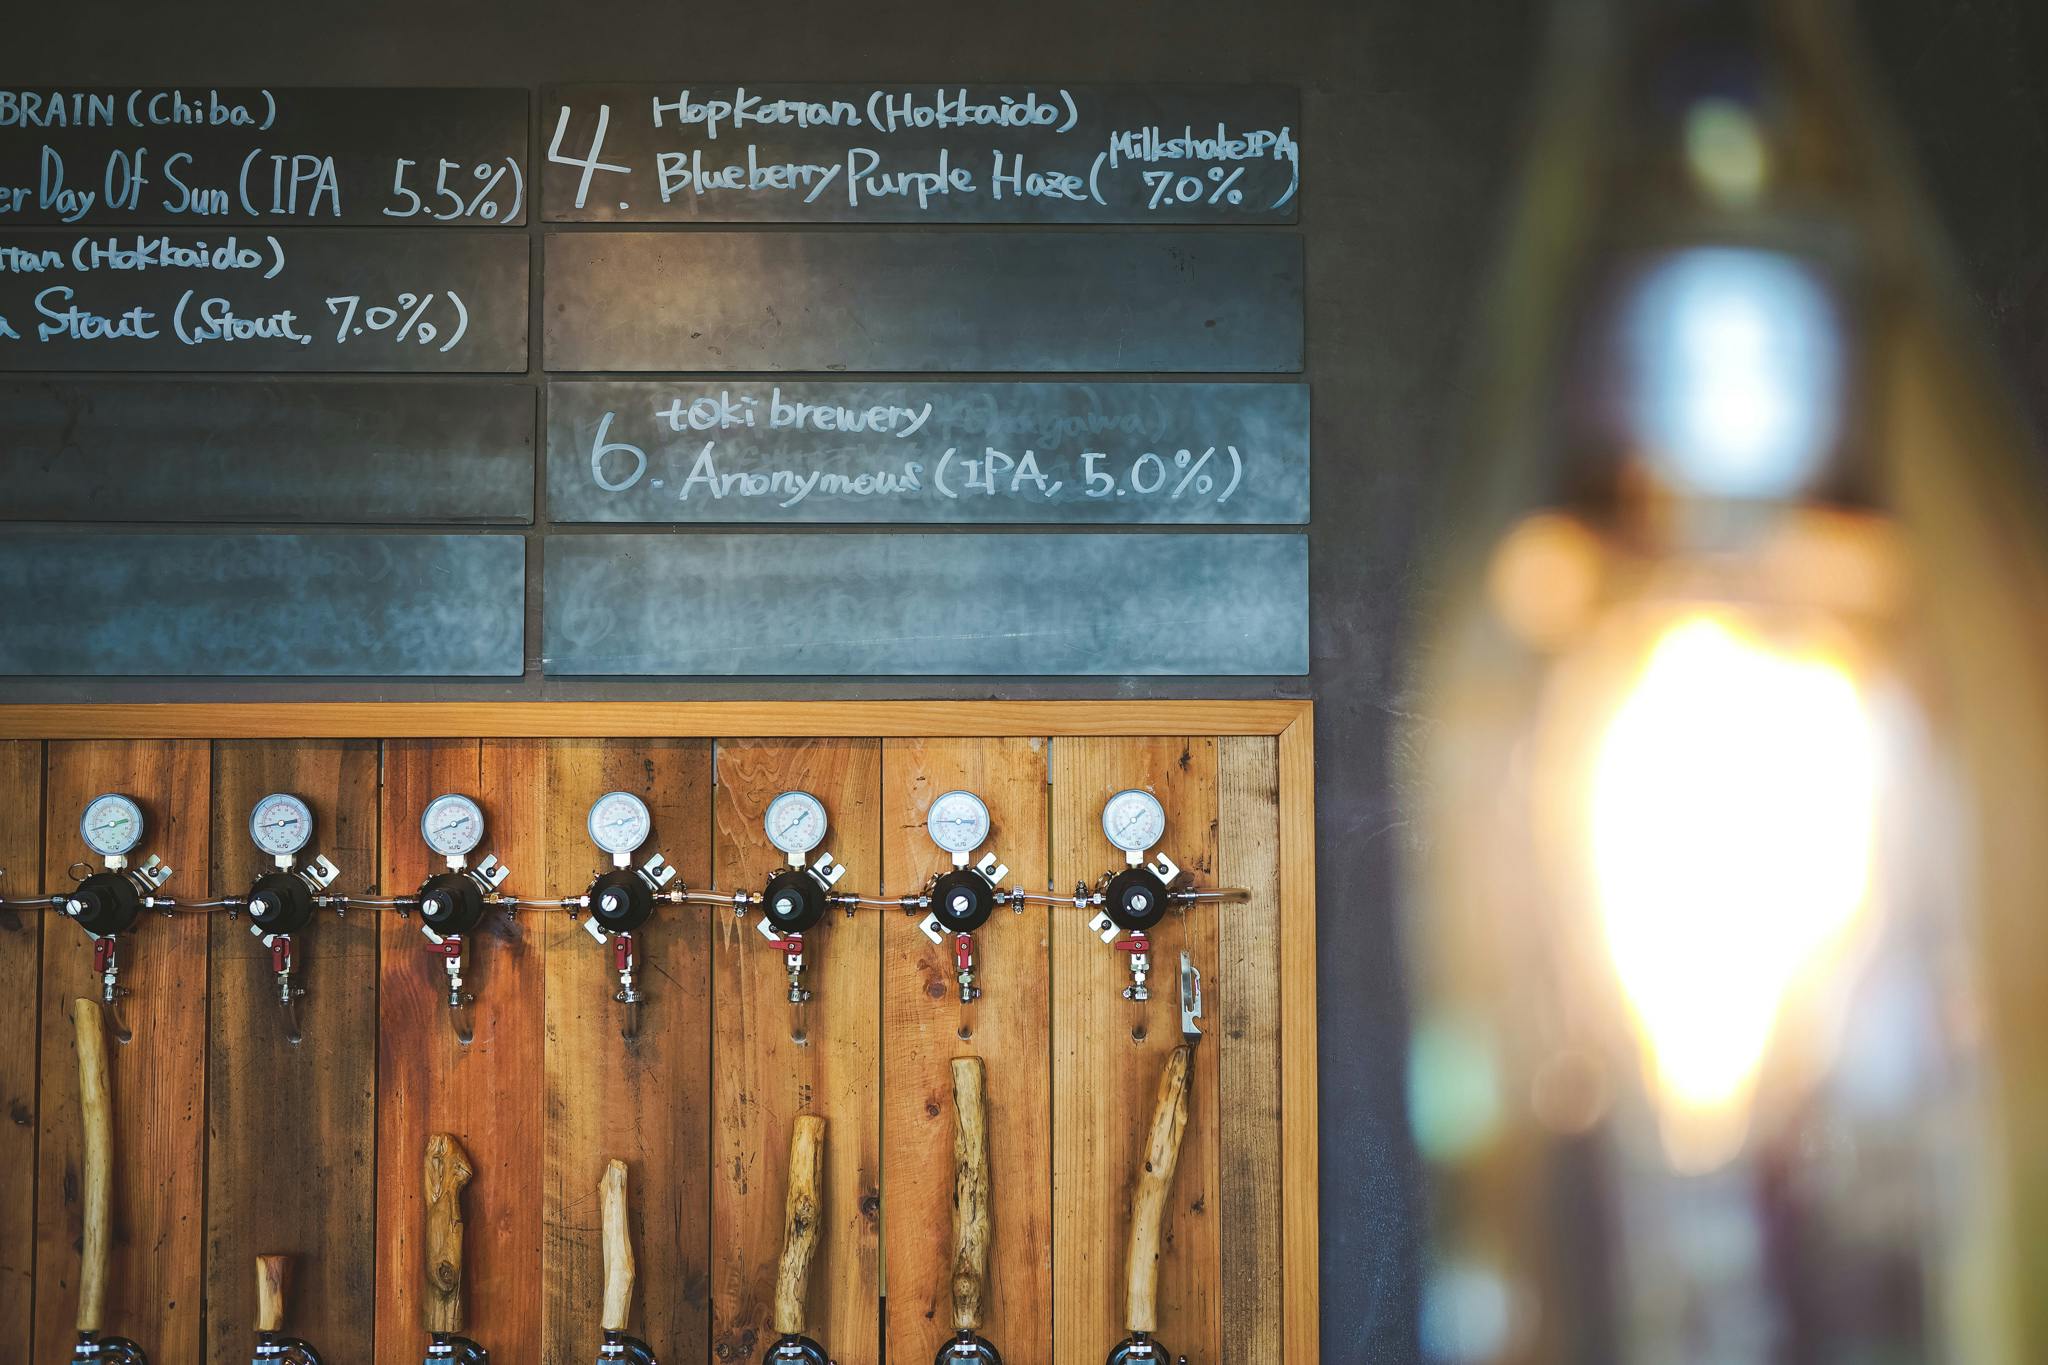 BRAIN (Chiba)
er Day Of Sun (IPA 5.5%)
ttan (Hokkaido)
a Stout (Stout, 7.0%)
4. HopKottan (Hokkaido)
Blueberry Purple Haze (Milkshake IPA 7.0%)
6. tOki brewery
Anonymous (IPA, 5.0%)